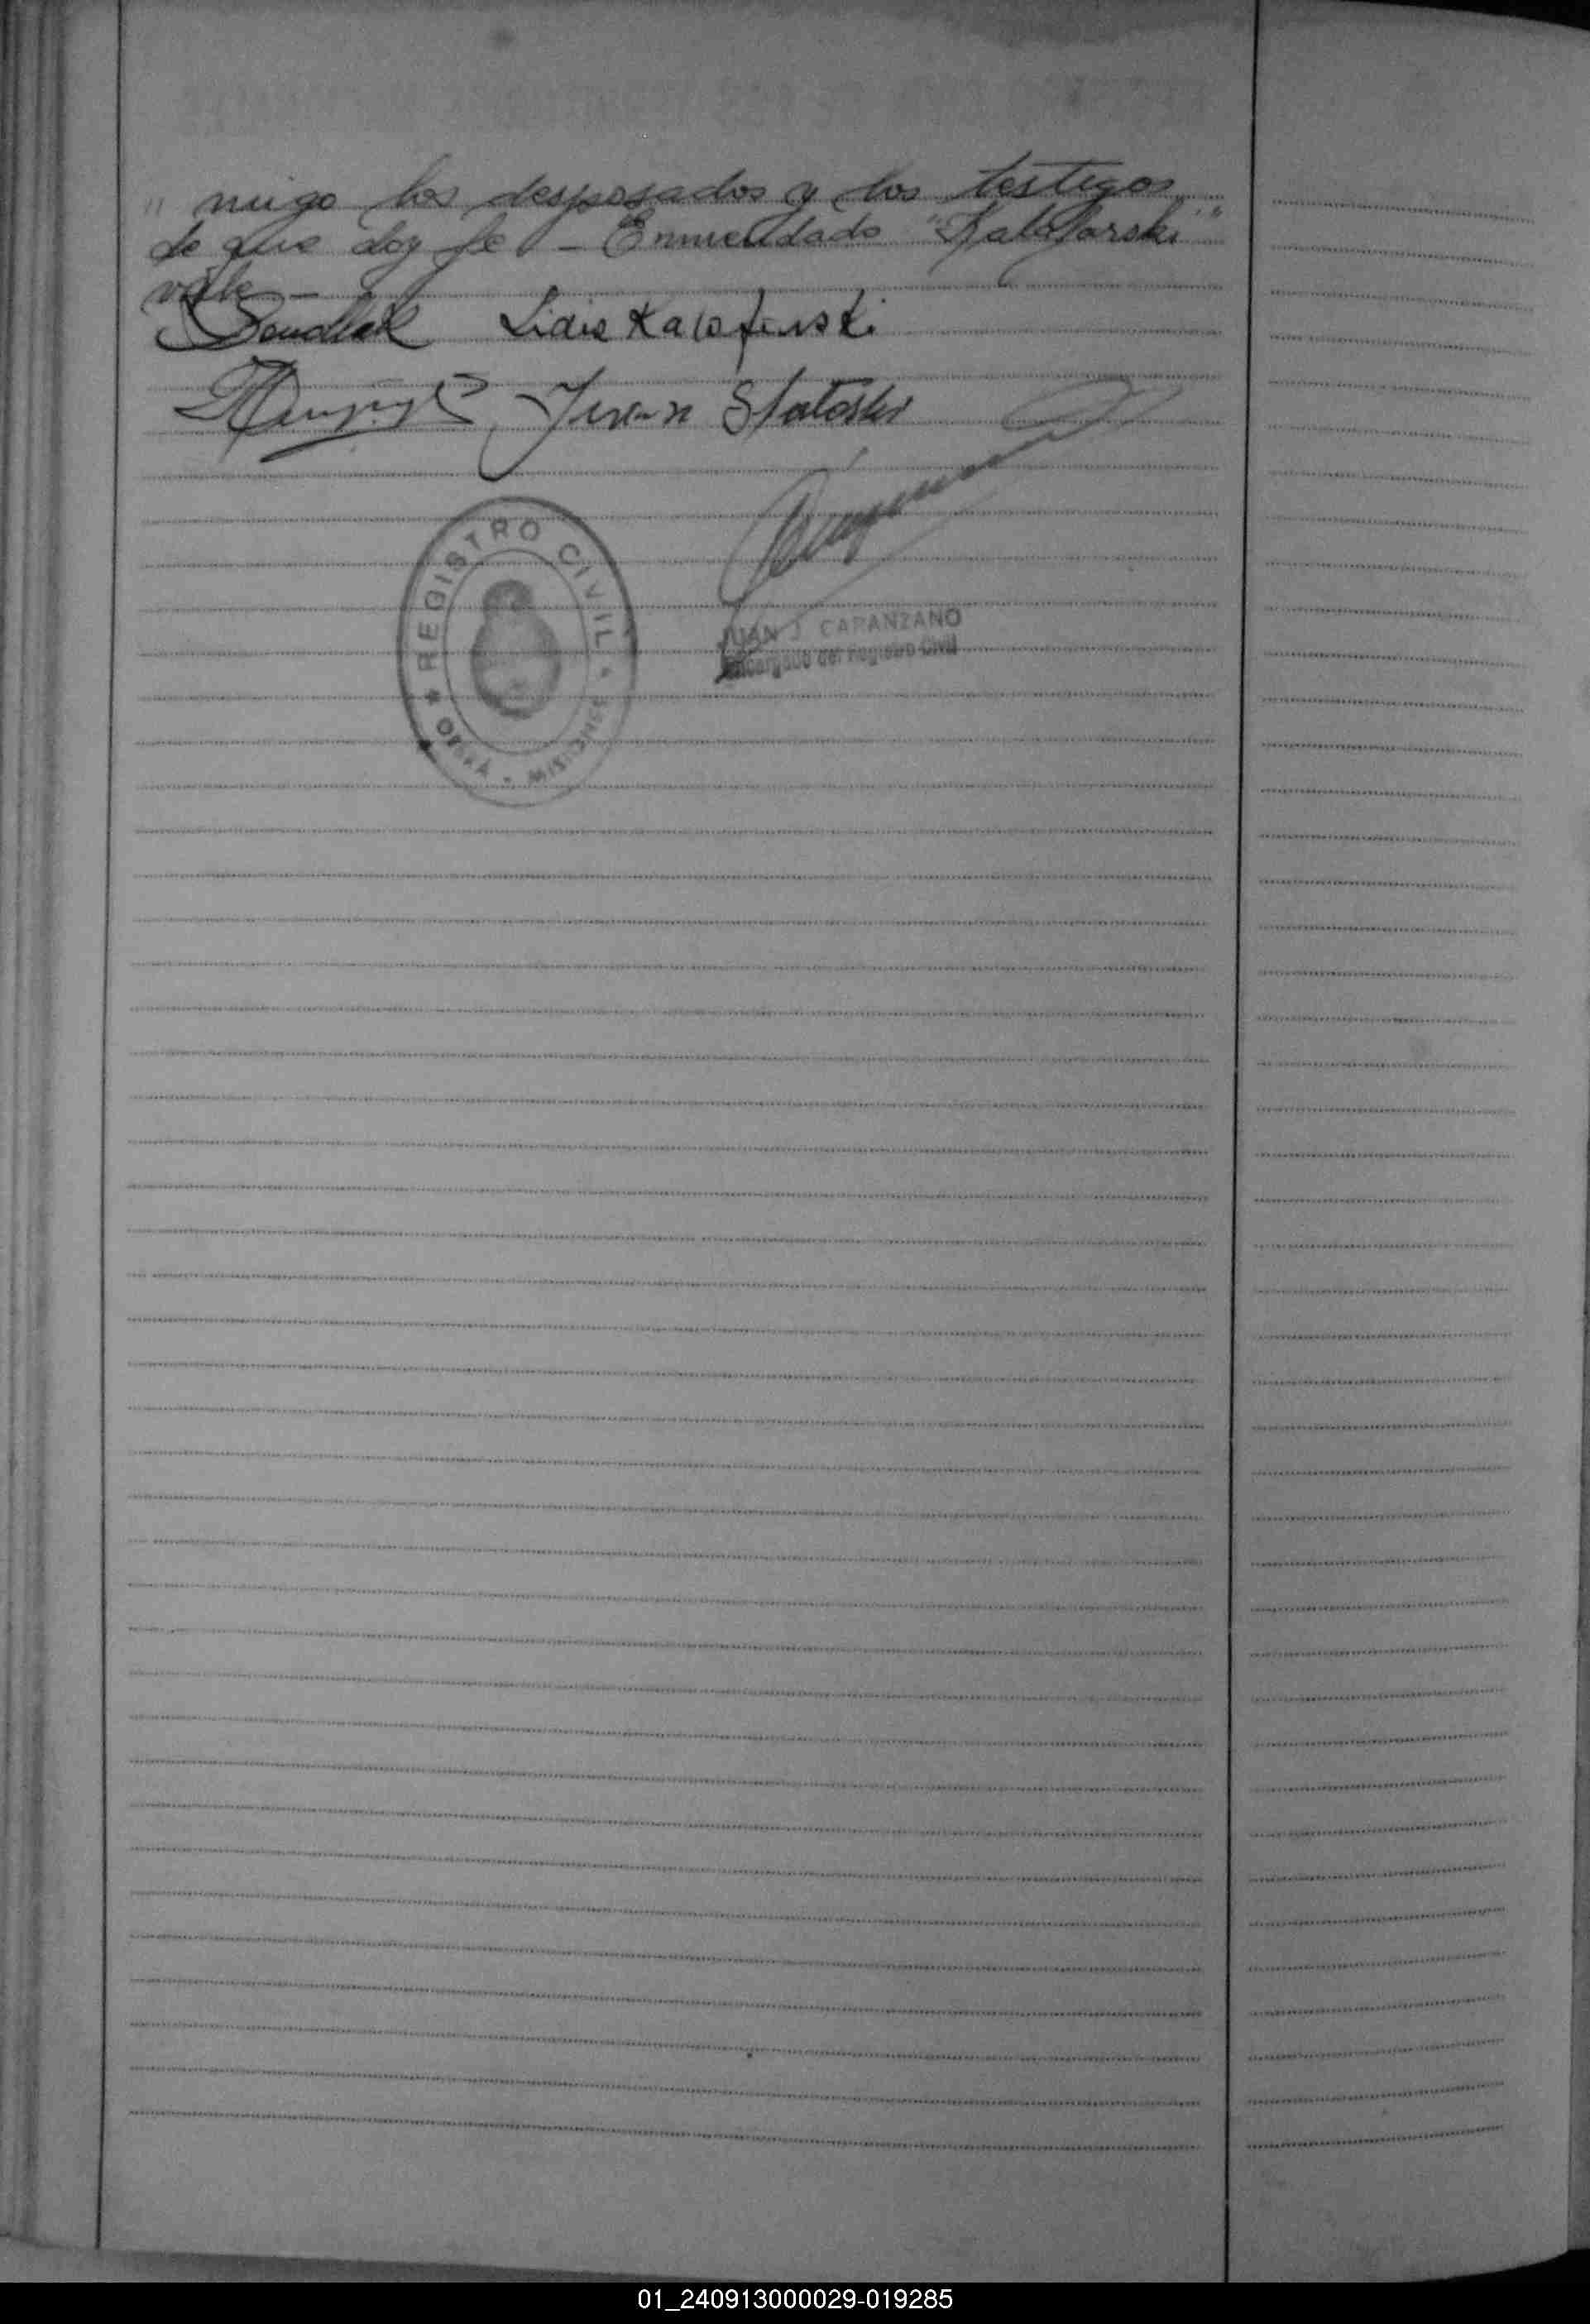 " migo los desposados y los testigos
de que doy fe - Enmendado "Kalafarski"
vale -
Lidia Kalafarski
Juan
REGISTRO CIVIL
OBERÁ * MISIONES
JUAN J. CAPANZANO
Encargado del Registro Civil
01_240913000029-019285